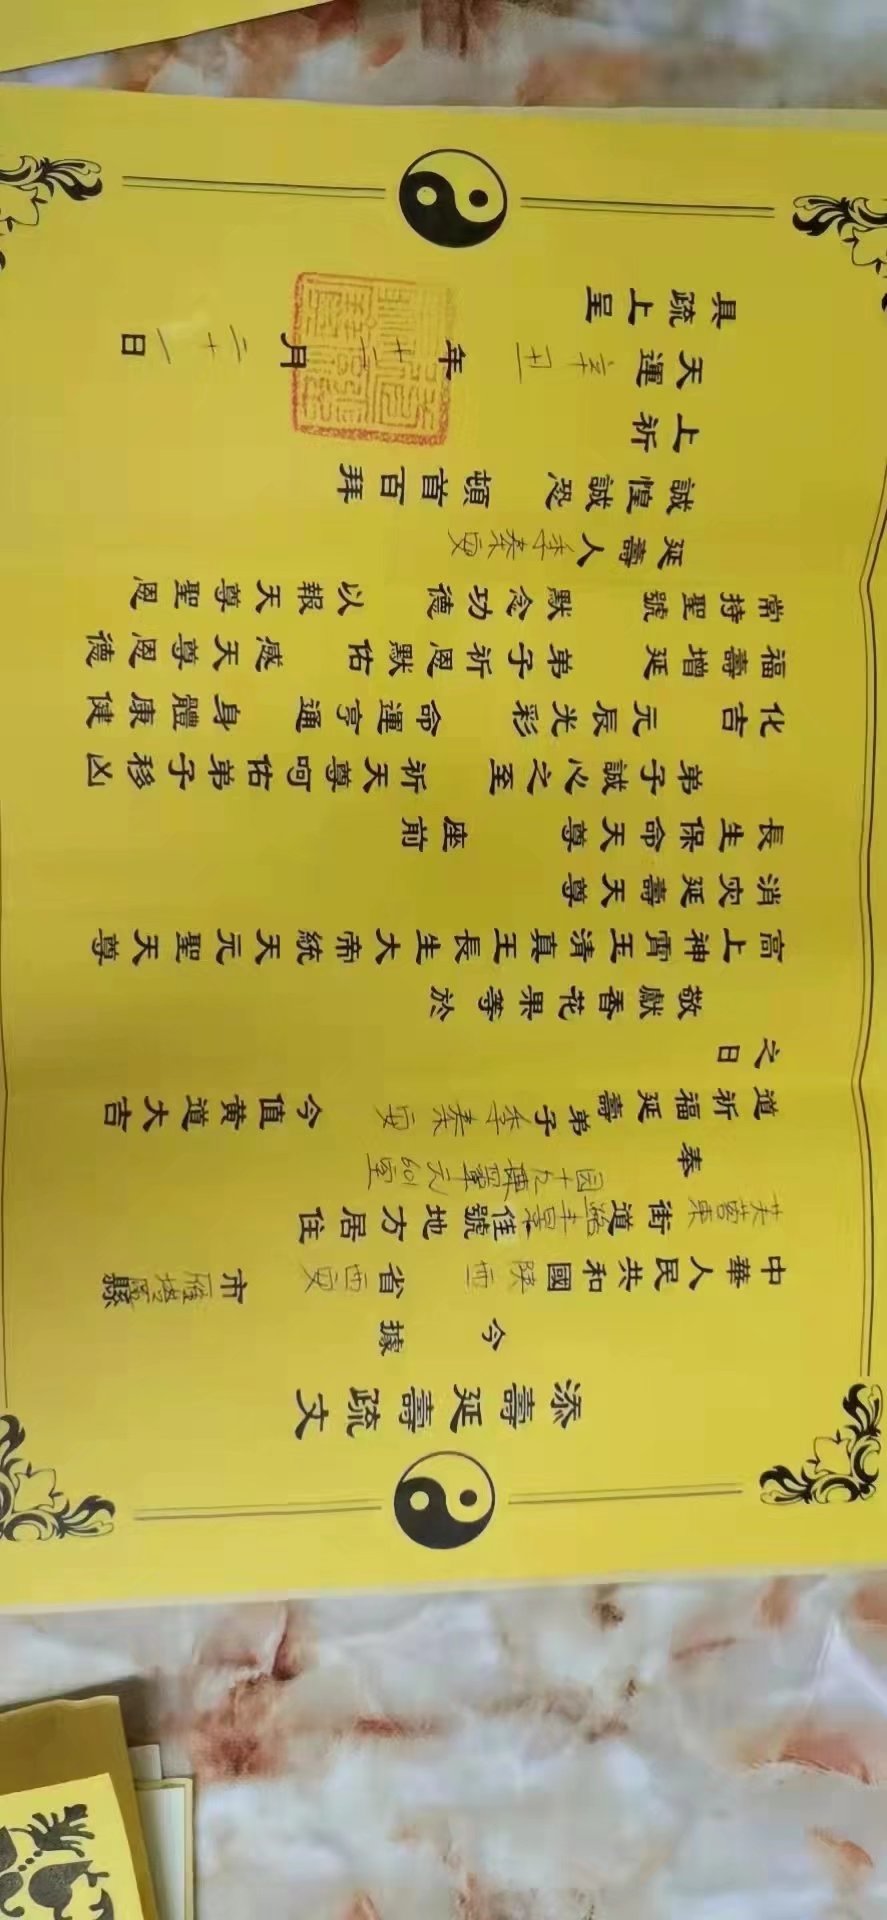 添壽延壽疏文
今據
中華人民共和國陝西省西安市雁塔區縣
芙蓉東街道 丰景佳號地方居住
園十九棟單元601室
奉
道祈福延壽弟子季秦安 今值黃道大吉
之日
敬獻香花果等於
高上神霄玉清真王長生大帝統天元聖天尊
消灾延壽天尊
長生保命天尊 座前
弟子誠心之至 祈天尊呵佑弟子移凶
化吉 元辰光彩 命運亨通 身體康健
福壽增延 弟子祈恩默佑 感天尊恩德
常持聖號 默念功德 以報天尊聖恩
延壽人季秦安
誠惶誠恐 頓首百拜
上祈
天運辛丑年十二月二十一日
具疏上呈